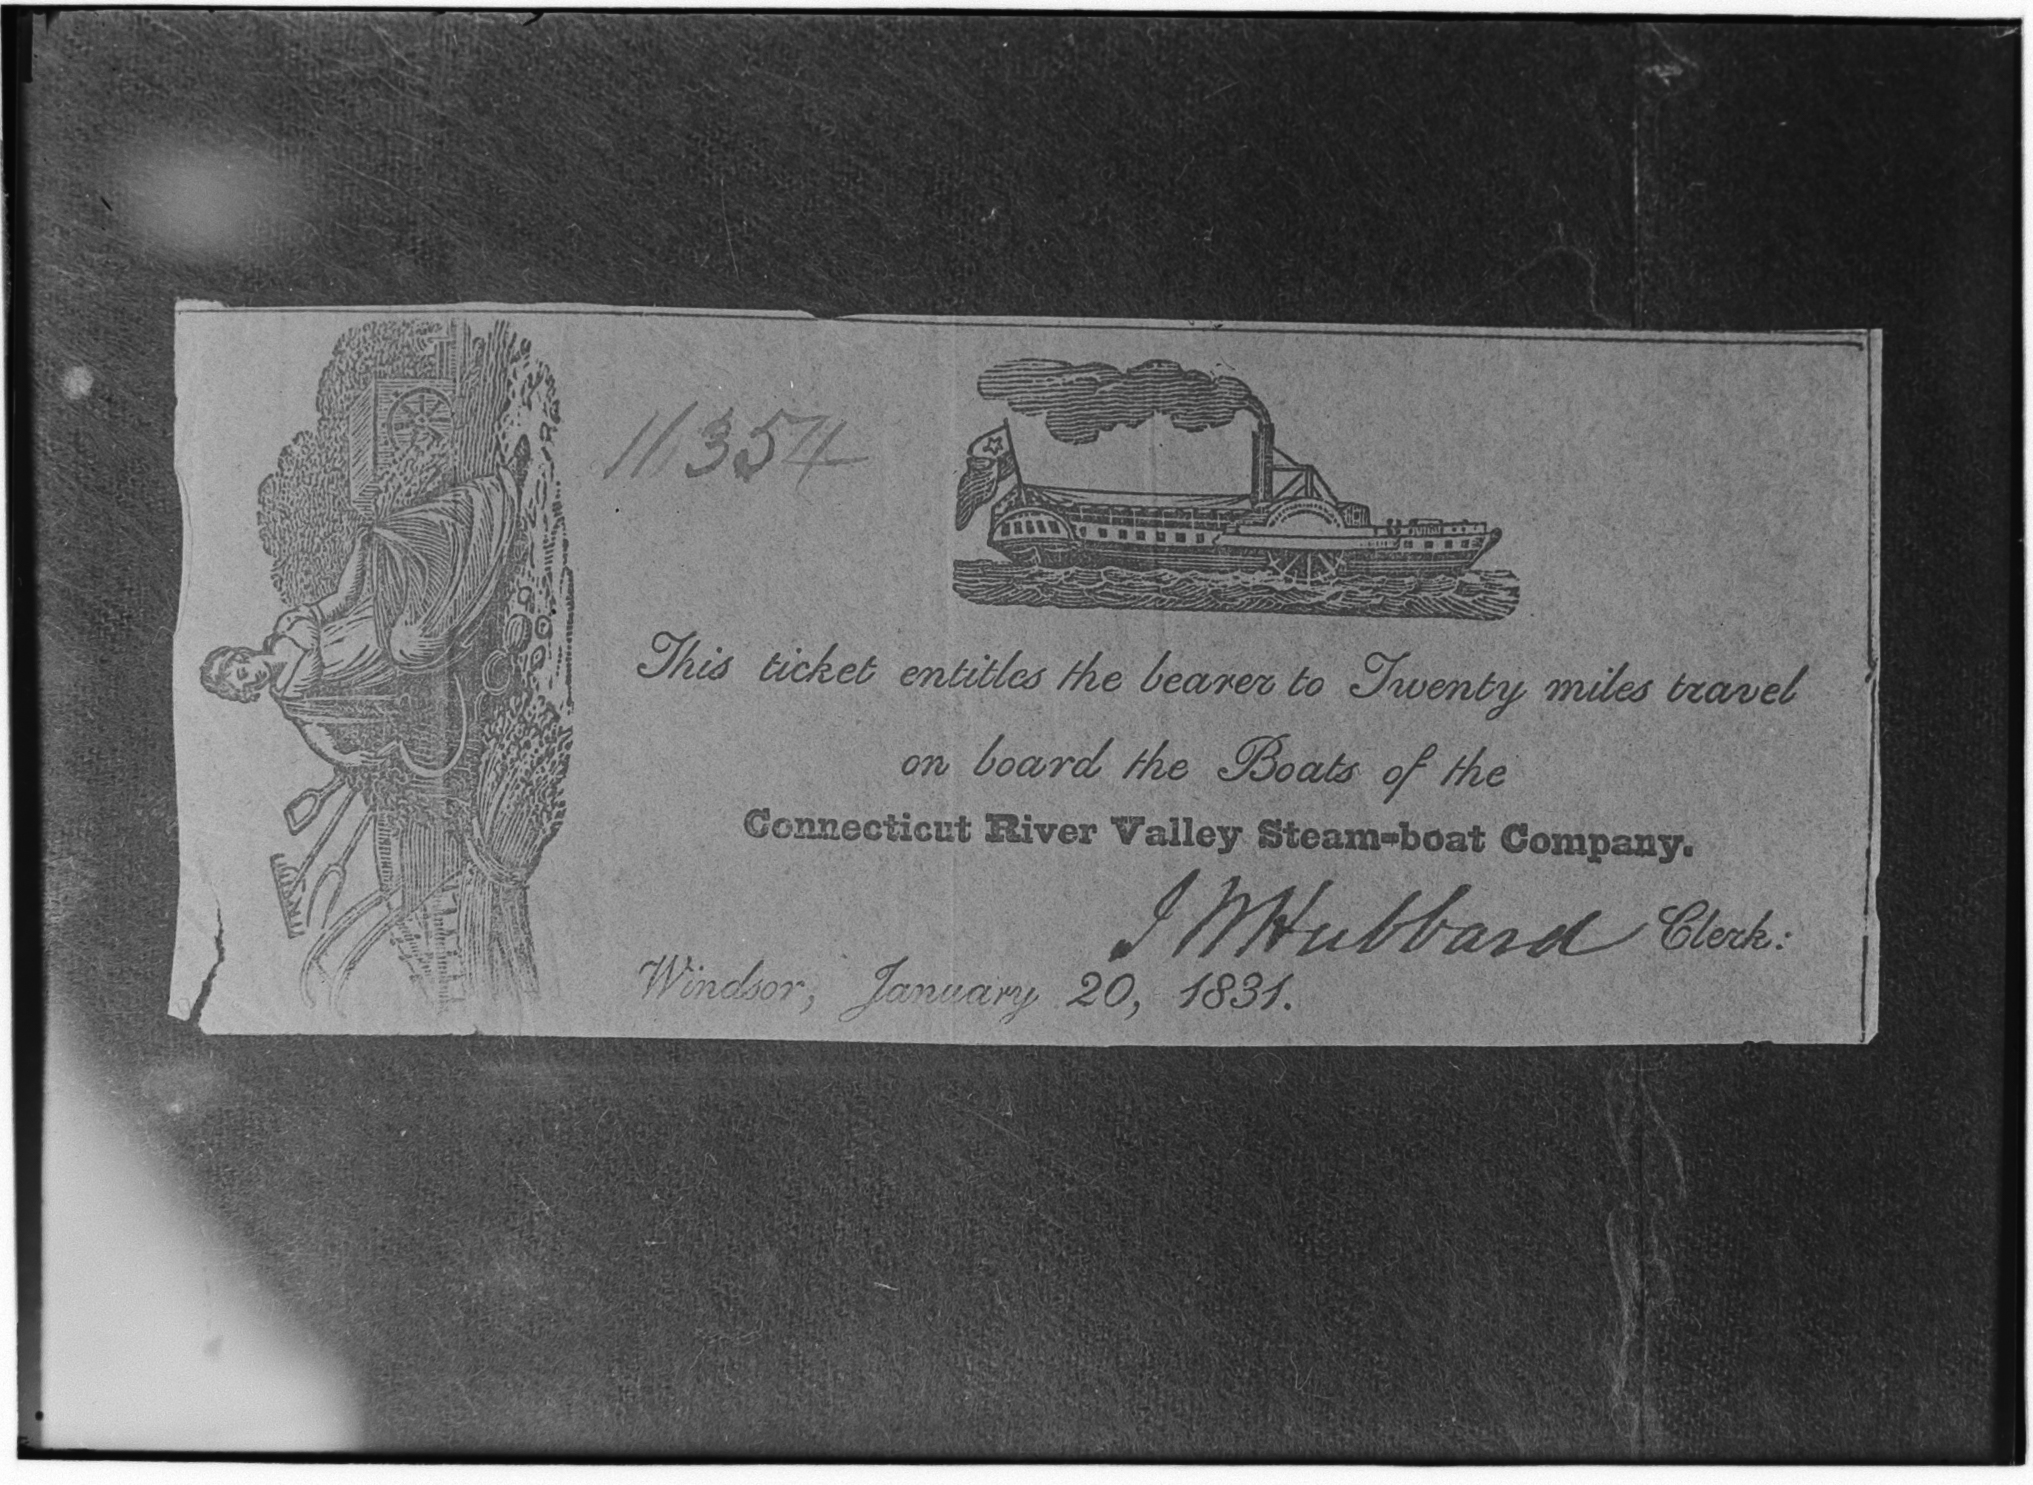 11354
This ticket entitles the bearer to Twenty miles travel
on board the Boats of the
Connecticut River Valley Steam-boat Company.
J W Hubbard Clerk:
Windsor, January 20, 1831.